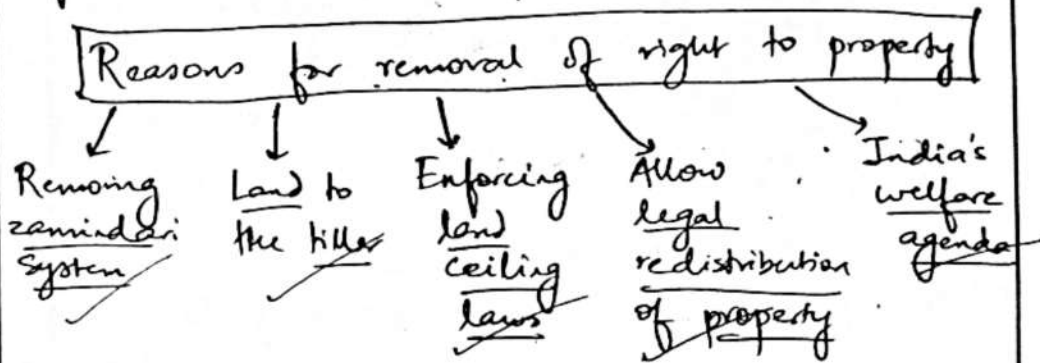 Reasons for removal of right to property
Removing
zamindari
system
Land to
the tiller
Enforcing
land
ceiling
laws
Allow
legal
redistribution
of property
India's
welfare
agenda